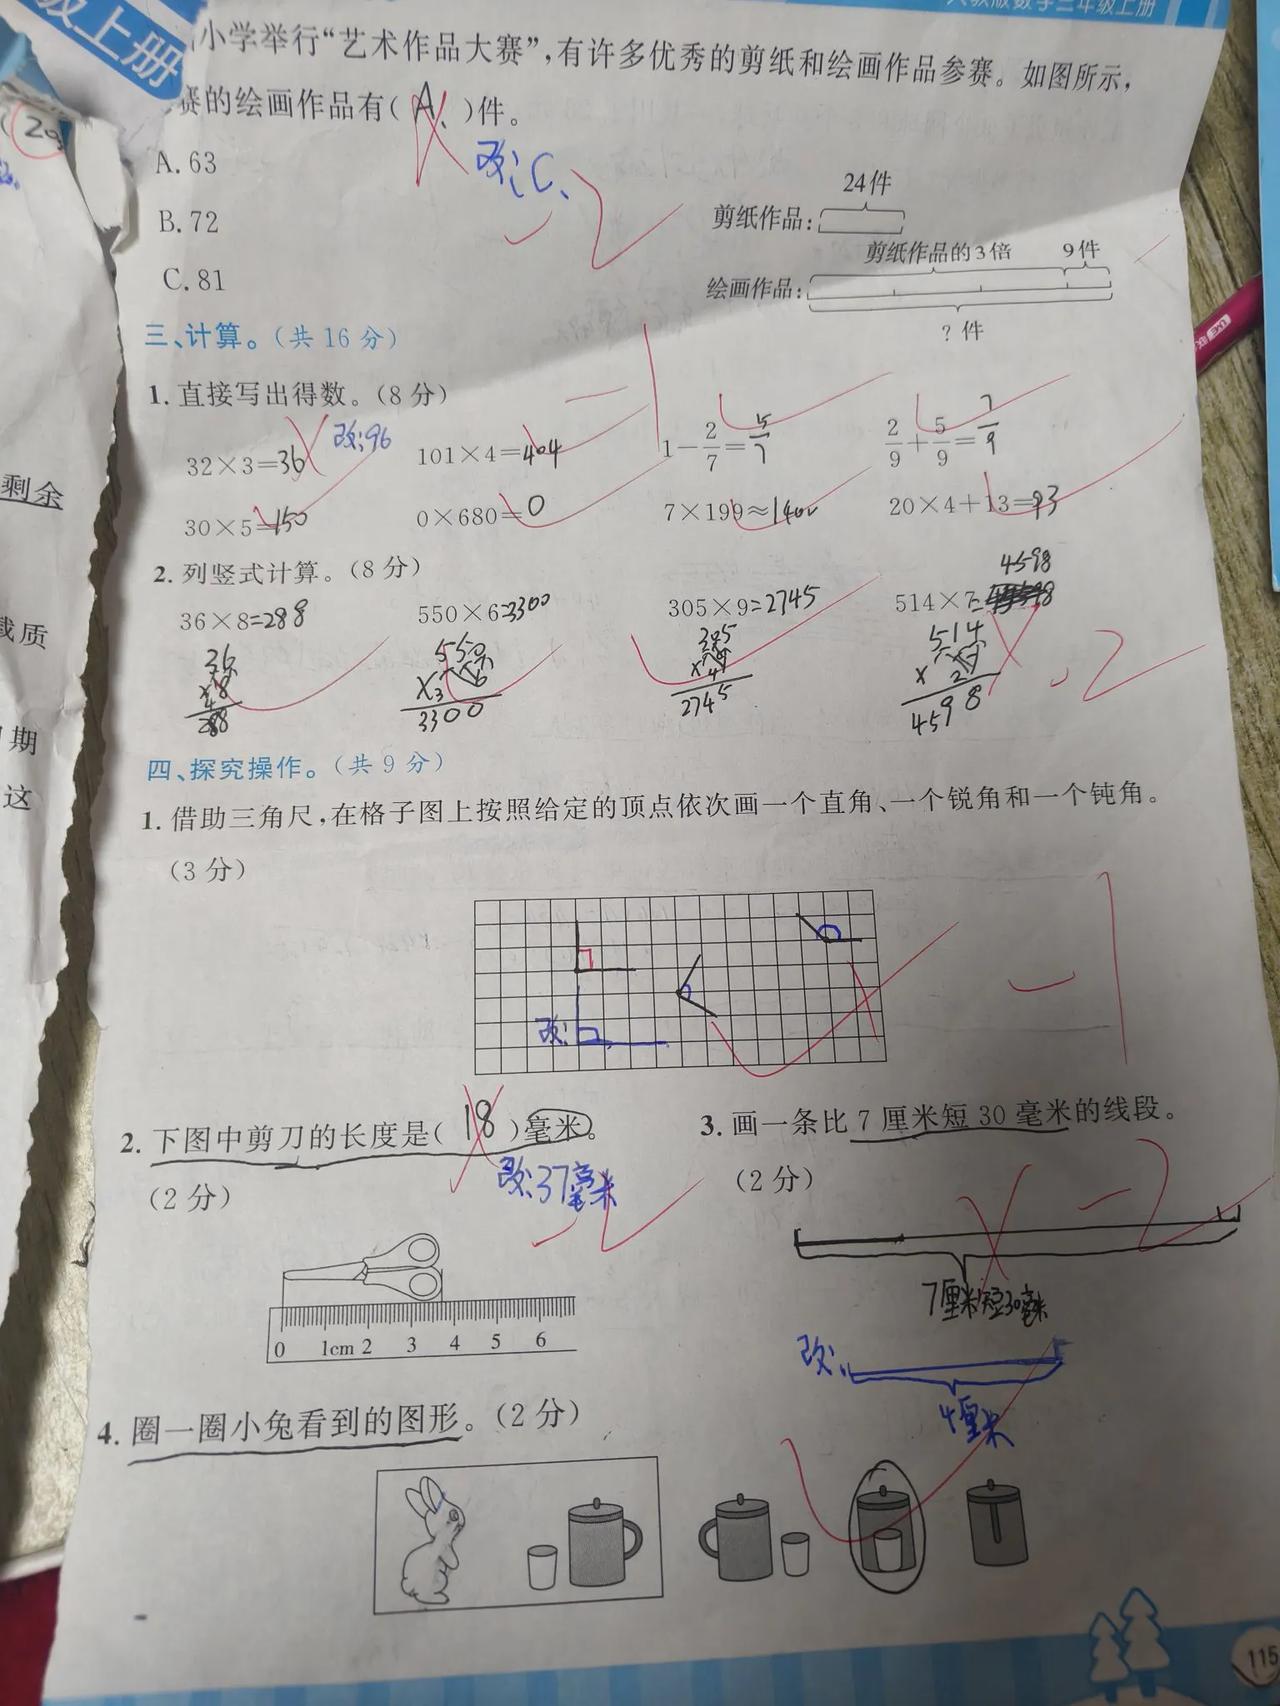 级上册
人教版数学三年级上册
小学举行“艺术作品大赛”,有许多优秀的剪纸和绘画作品参赛。如图所示,
赛的绘画作品有( A、 )件。
改:C、
-2
A.63
B.72
C.81
24件
剪纸作品:
剪纸作品的3倍 9件
绘画作品:
?件
三、计算。(共16分)
1.直接写出得数。(8分)
-1
32×3=36 改:96 101×4=404 1-2/7=5/7 2/9+5/9=7/9
30×5=150 0×680=0 7×199≈1400 20×4+13=93
2.列竖式计算。(8分)
36×8=288 550×6=3300 305×9=2745 514×7=4598
36 550 305 514
×8 ×6 ×9 ×7
4 3 4 2
288 3300 2745 4598
-2
四、探究操作。(共9分)
1.借助三角尺,在格子图上按照给定的顶点依次画一个直角、一个锐角和一个钝角。
(3分)
-1
改:
2.下图中剪刀的长度是( 18 )毫米。
(2分)
改:37毫米
-2
0 1cm 2 3 4 5 6
3.画一条比7厘米短30毫米的线段。
(2分)
-2
7厘米短30毫米
改:
4厘米
4.圈一圈小兔看到的图形。(2分)
115
剩余
载质
期
这